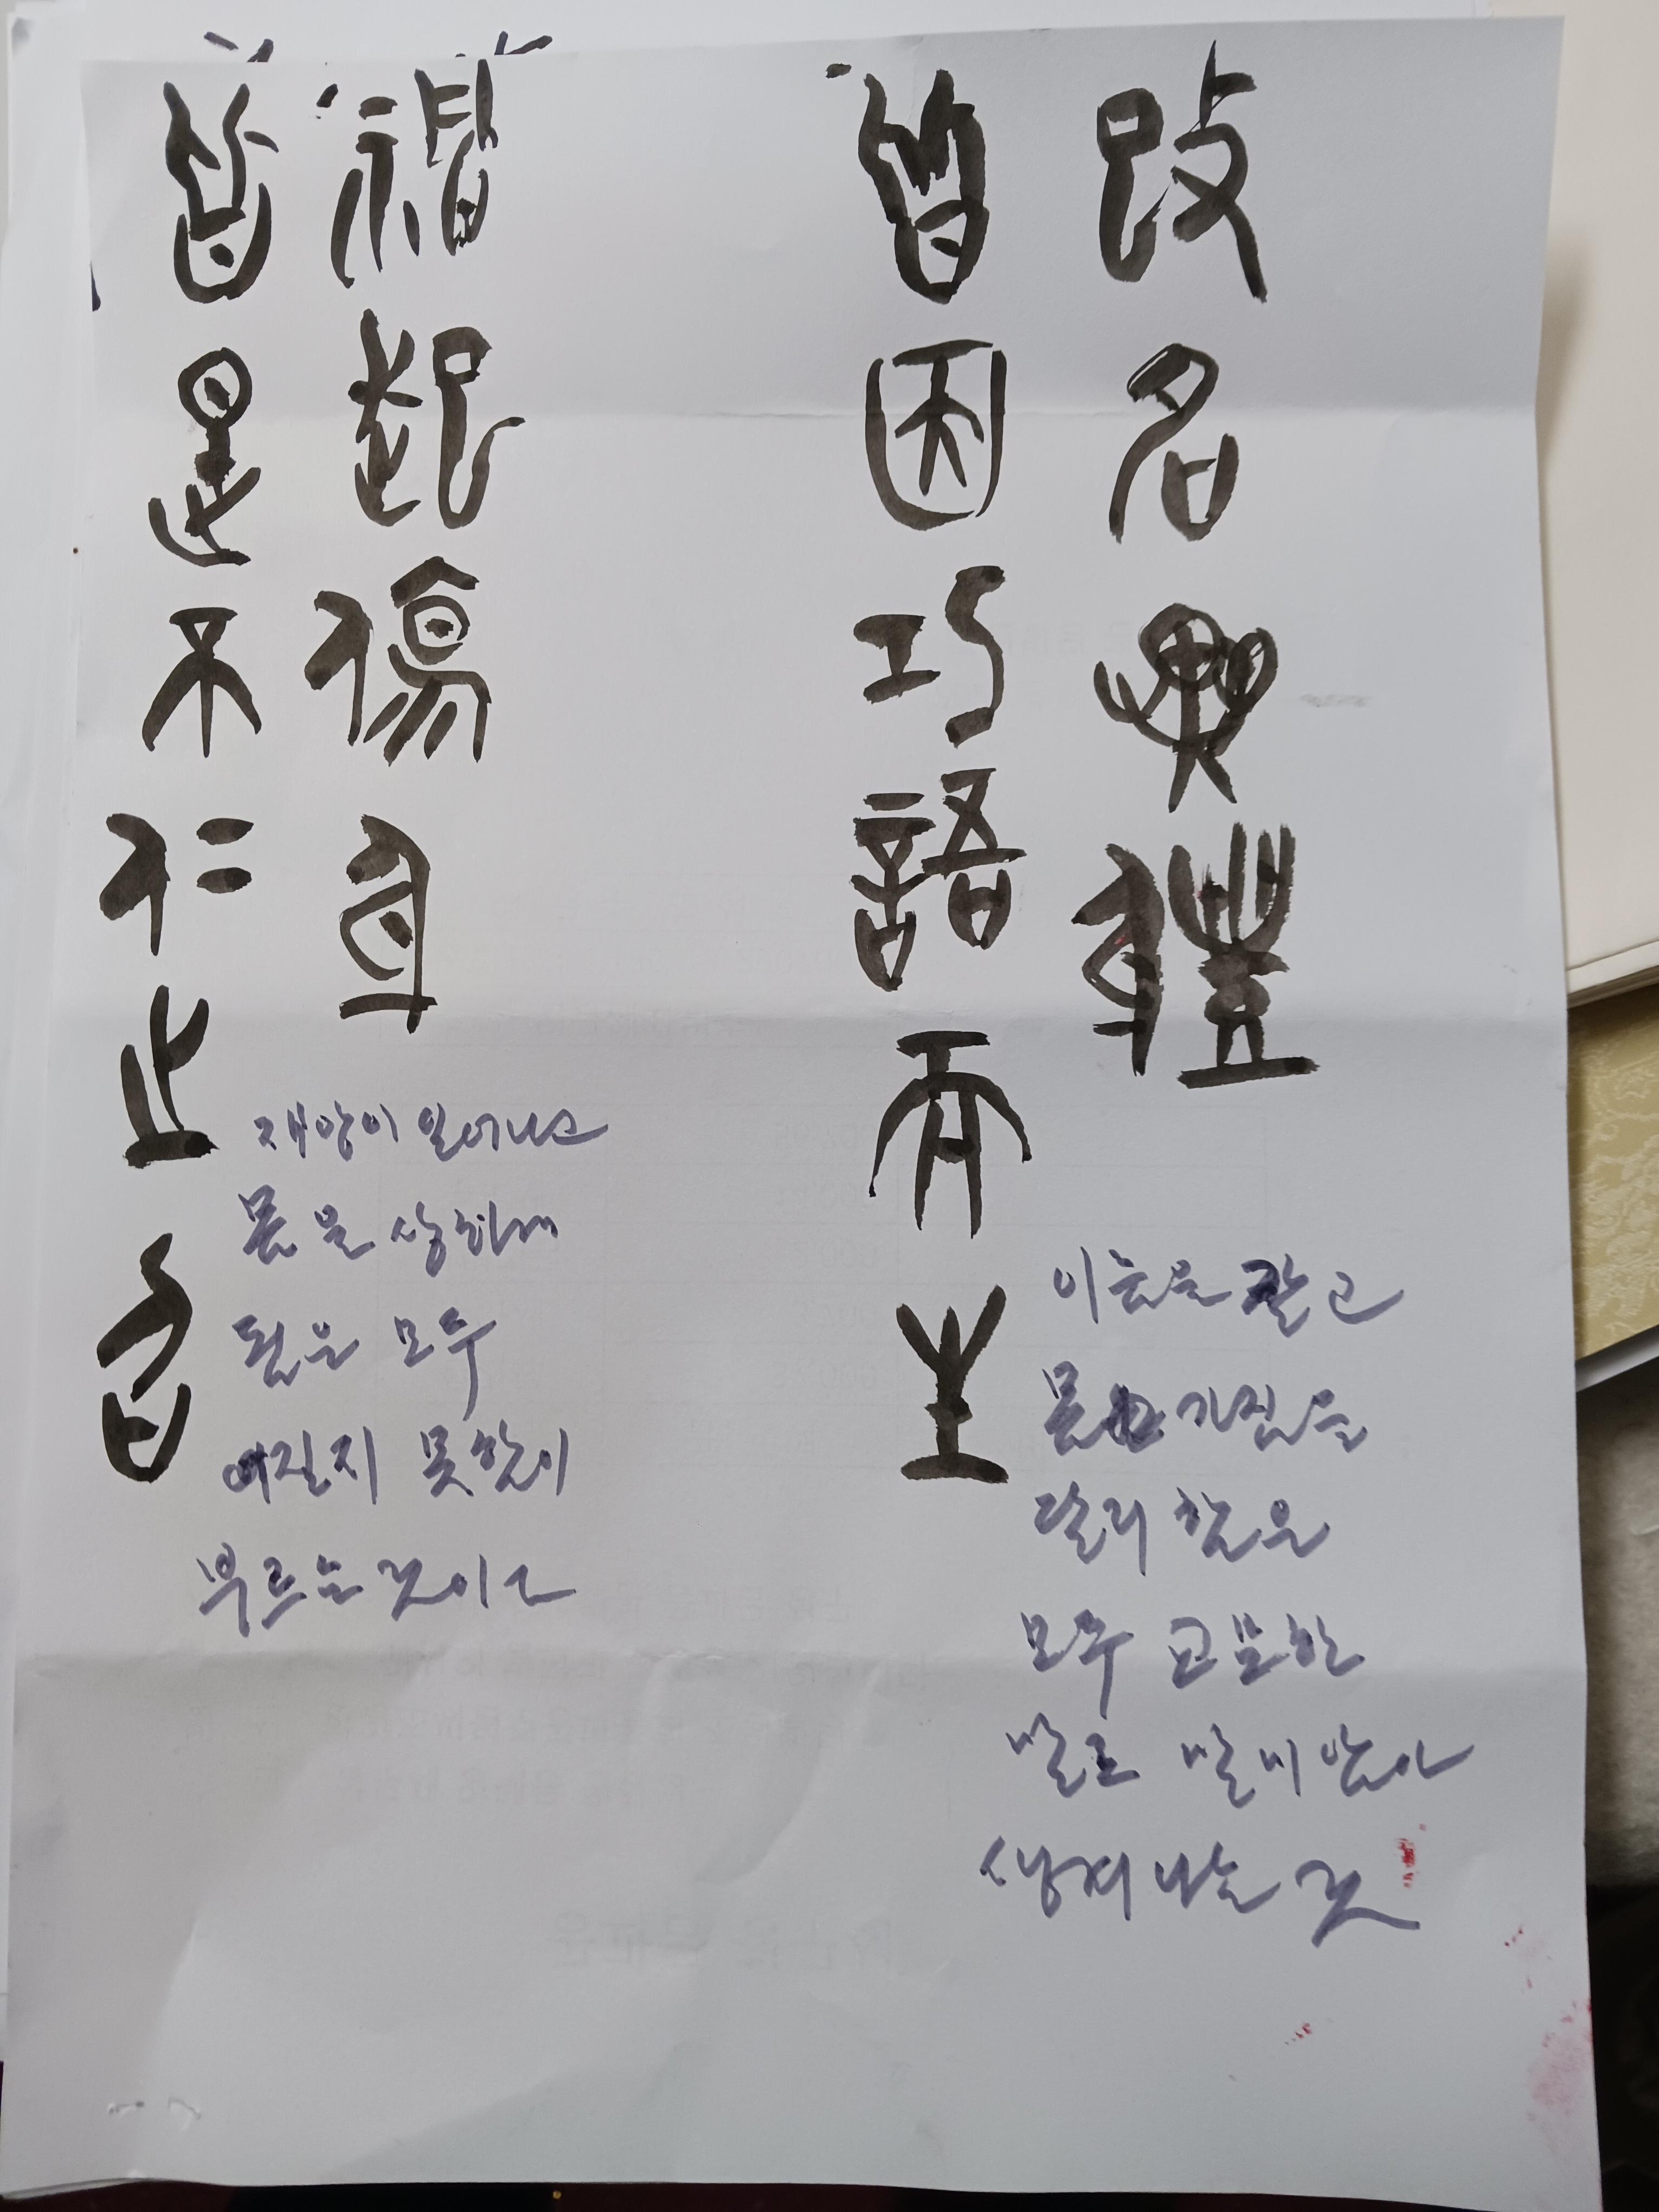 改名異體
皆因巧語而生
이름을 갈고
몸가짐을
달리 함은
모두 교묘한
말로 말미암아
생겨나는 것
禍起傷身
皆是不仁之召
재앙이 일어나고
몸을 상하게
됨은 모두
어질지 못함이
부르는 것이다